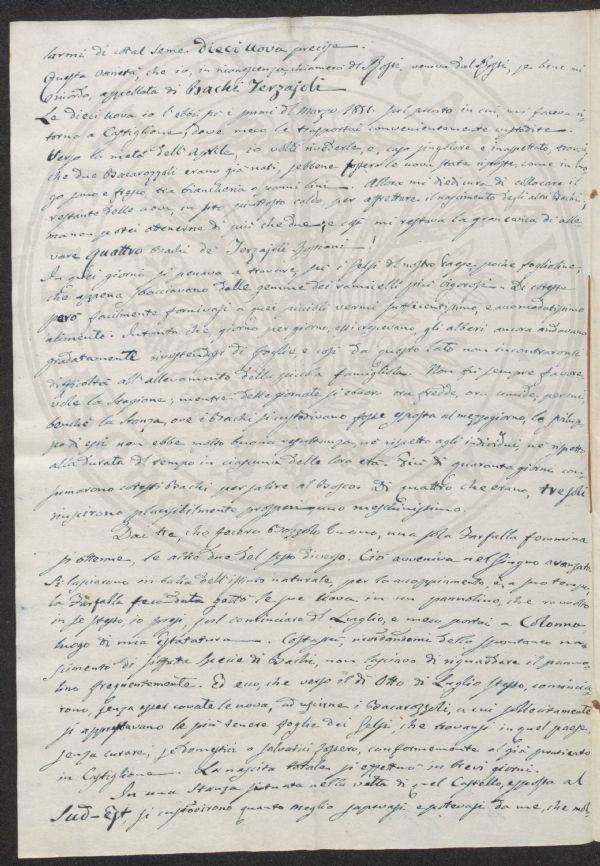 larmi di tal seme. Dieci uova precise.
Questa varietà, che io, in riconoscenza, chiamerò di Rossi, veniva dal Rossi, se bene mi
ricordo, appellata di Bachi Terzajoli
Le dieci uova io l'ebbi pei primi del Marzo 1851. sul punto in cui mi faceva ri-
torna a Castiglione, dove meco le trasportai convenientemente custodite.
Verso la metà dell'Aprile, io volli rivederle, e, caso singolare e inaspettato, trovai
che due Bacarozzoli erano già nati, sebbene fossero le uova state riposte, come in luo
go sano e fresco, tra biancheria o panni lini. Allora mi diedi cura di collocare il
restante delle uova, in sito piuttosto caldo, per affrettare il nascimento degli altri Bachi;
ma non potei ottenerne di più che due; e così mi restava la gran carica di alle
vare quattro Bachi de' Terzajoli Rossiani!
In quei giorni si penava a trovare, su i Gelsi del nostro Paese, poche foglioline,
che appena sbocciavano dalle gemme dei ramicelli più vigorosi. Di coteste
però facilmente fornivasi a quei piccoli vermi sufficientissimo, e accomodatissimo
alimento. Intanto che, giorno per giorno, essi crescevano, gli alberi ancora andavano
gradatamente rivestendosi di foglie e così da questo lato non incontraronsi
difficoltà all'allevamento della piccola famigliola. Non fu sempre favore-
vole la Stagione; mentre delle giornate si ebber ora fredde, ora umide, per cui,
benchè la Stanza, ove i Bachi si custodivano fosse esposta al mezzogiorno, lo svilup-
po di essi non ebbe molto buona riuscita, nè rispetto agli individui, nè rispetto
alla durata del tempo in ciascuna delle loro età. Più di quaranta giorni con-
sumarono cotesti Bachi per salire al Bosco. Di quattro che erano, tre soli
riuscirono plausibilmente prosperi uno meschinissimo.
Dai tre, che fecero Bozzolo buono, una sola Farfalla femmina
si ottenne, le altre due del sesso diverso. Ciò avveniva nel Giugno avanzato.
Si lasciarono in balia dell'istinto naturale, per lo accoppiamento, e a suo tempo,
la Farfalla fecondata gettò le sue uova in un pannolino, che ravvolto
in se stesso, io presi, sul cominciare del Luglio, e meco portai a Colonna
luogo di mia Estatatura. Costassù, ricordandomi dello spontaneo na-
scimento di siffatta specie di Bachi, non lasciava di riguardare il panno
lino frequentemente. Ed ecco, che verso il dì Otto di Luglio stesso, comincia
rono, senza esser covate le uova, ad uscirne i Bacarozzoli, a cui sollecitamente
si apprestavano le più tenere foglie dei Gelsi, che trovansi in quel paese,
senza curare, se domestici o salvatici fossero, conformemente al già praticato
in Castiglione. La nascita totale si effettuò in brevi giorni.
In una Stanza situata nella volta di quel Castello, esposta al
Sud-Est, si custodirono quanto meglio sapevasi e potevasi da me, che mol